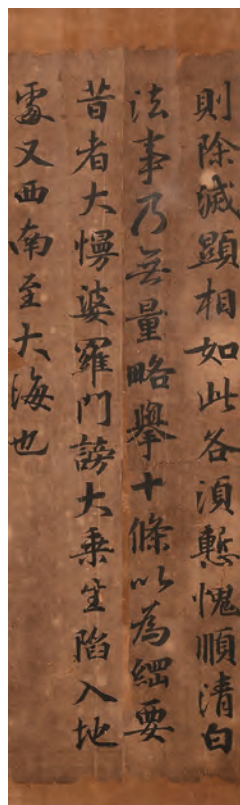 則除滅顕相如此各湏慙愧順清白
法事乃無量略舉十條以為綱要
昔者大慢婆羅門謗大乗生陷入地
處又西南至大海也